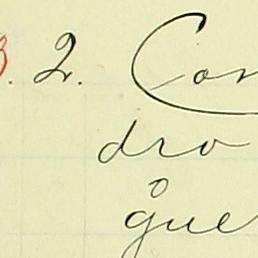 3. 2. Con
dro
que